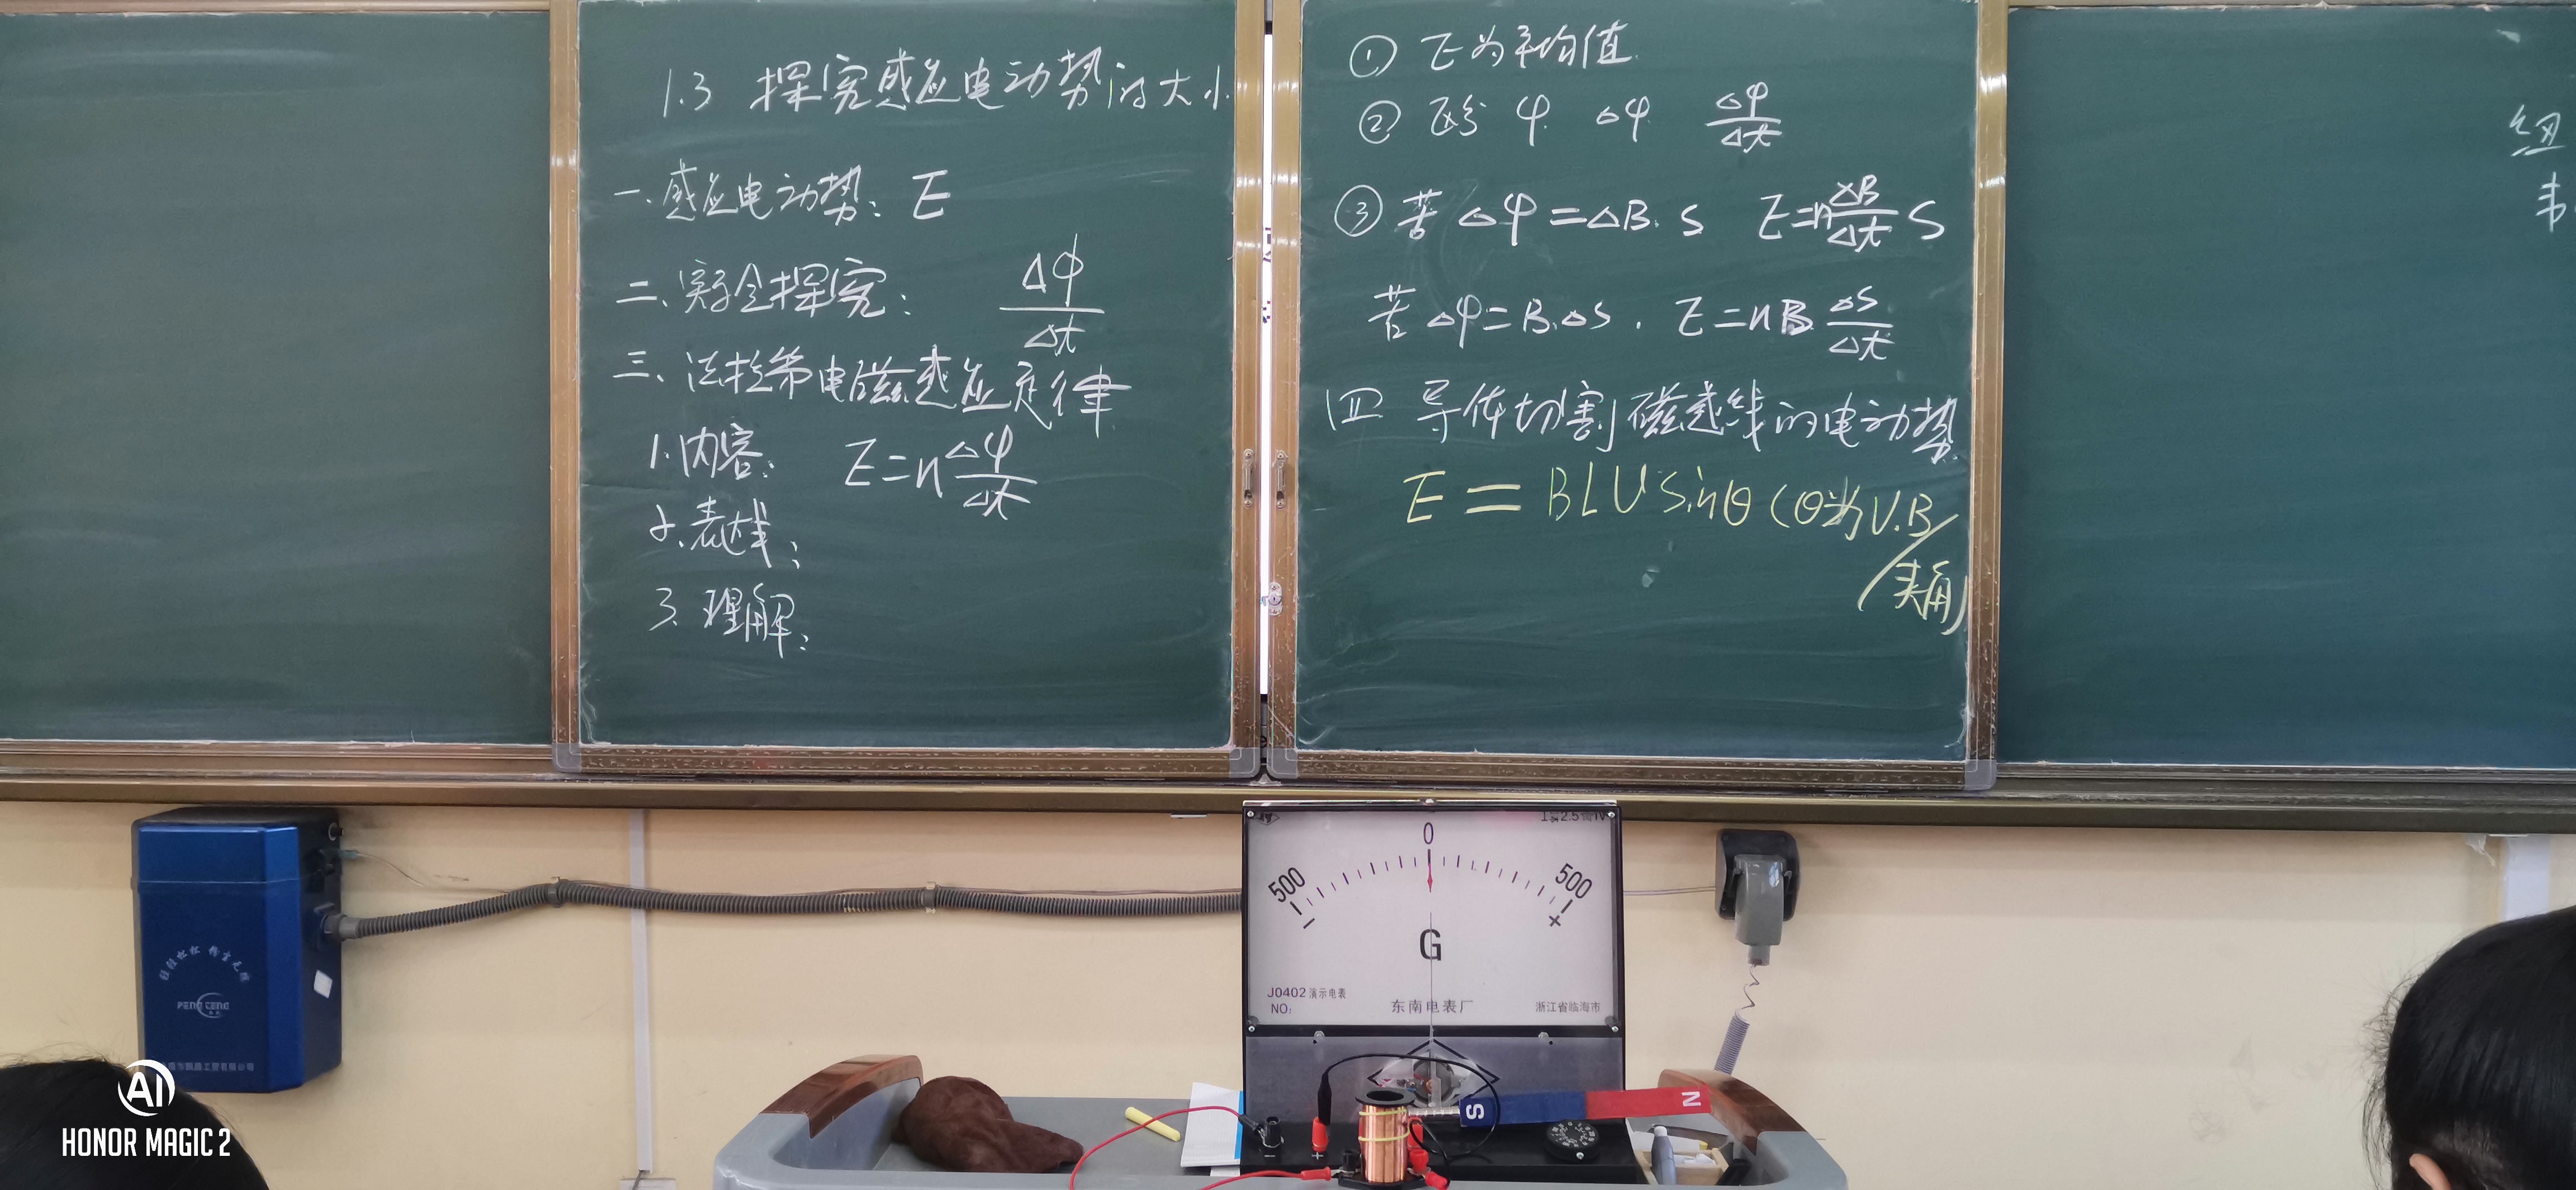 1.3 探究感应电动势的大小
一、感应电动势：E
二、实验探究： Δφ/Δt
三、法拉第电磁感应定律
1.内容： E=nΔφ/Δt
2.表达式：
3.理解：
① E为平均值
② 区分 φ Δφ Δφ/Δt
③ 若 Δφ=ΔB.S E=nΔB/Δt S
若 Δφ=B.ΔS. E=nBΔS/Δt
四 导体切割磁感线的电动势
E=BLVsinθ(θ为V.B
夹角)
纽
韦
0
500
500
-
+
G
J0402 演示电表
NO:
东南电表厂
浙江省临海市
PENG CENG
S
N
AI
HONOR MAGIC 2